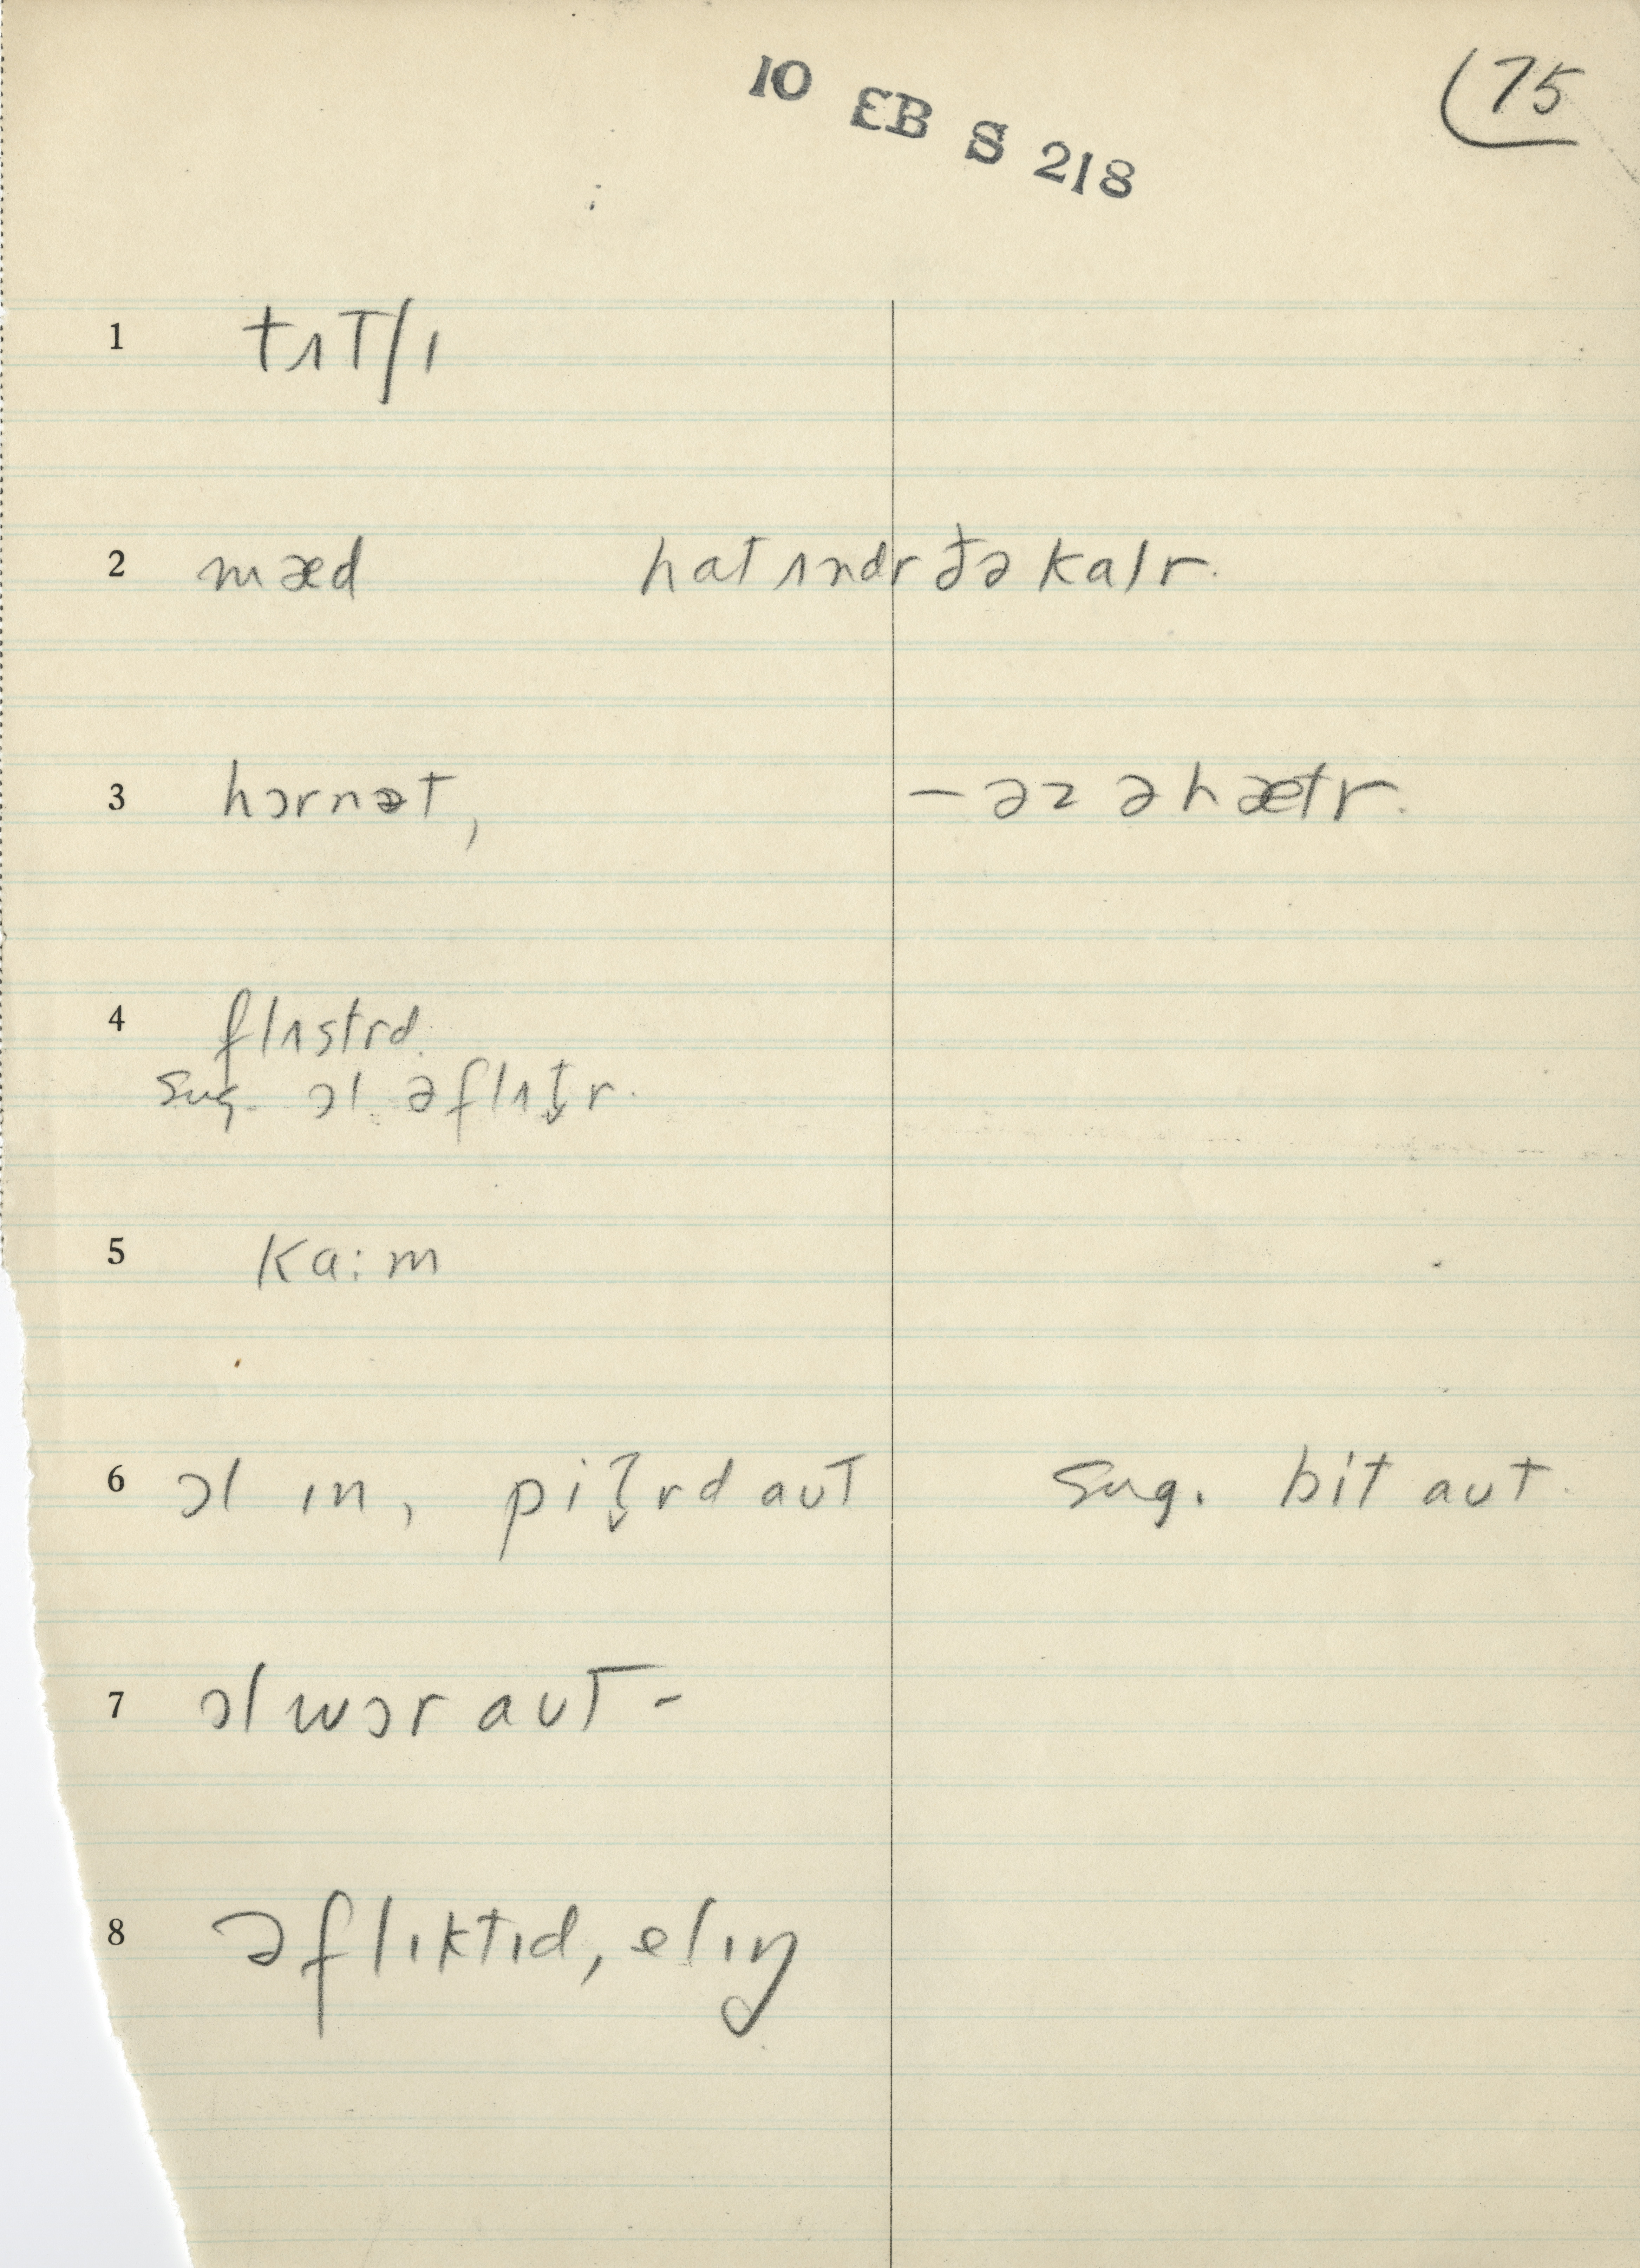 10 EB S 218
75
1 tʌtʃɪ
2 mæd hat ʌndr ðə kalr.
3 hɔrnət, – əz ə hætr.
4 flʌstrd.
Sug. ɔl əflʌt̬r.
5 ka:m
6 ɔl ɪn, pit̬rd aut Sug. bit aut.
7 ɔl wɔr aut -
8 əflɪktɪd, elɪŋ